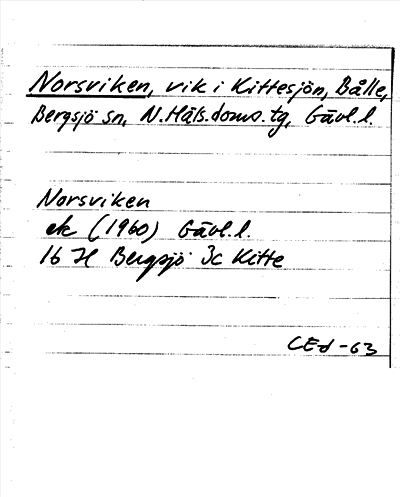 Norsviken, vik i Kittesjön, Bålle,
Bergsjö sn, N. Häls. doms. tg, Gävl. l.
Norsviken
ek (1960) Gävl. l.
16 H Bergsjö 3c Kitte
CEd -63